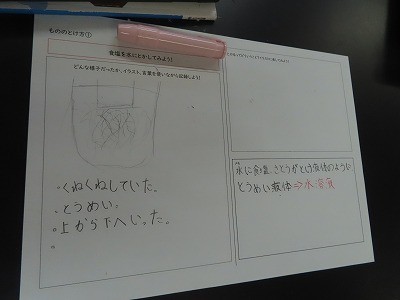 もののとけ方①
食塩を水にとかしてみよう!
どんな様子だったか、イラスト、言葉を使いながら記録しよう!
・くねくねしていた。
・とうめい。
・上から下へいった。
水に食塩、さとうがとけた液体のように
とうめい液体⇒水溶液